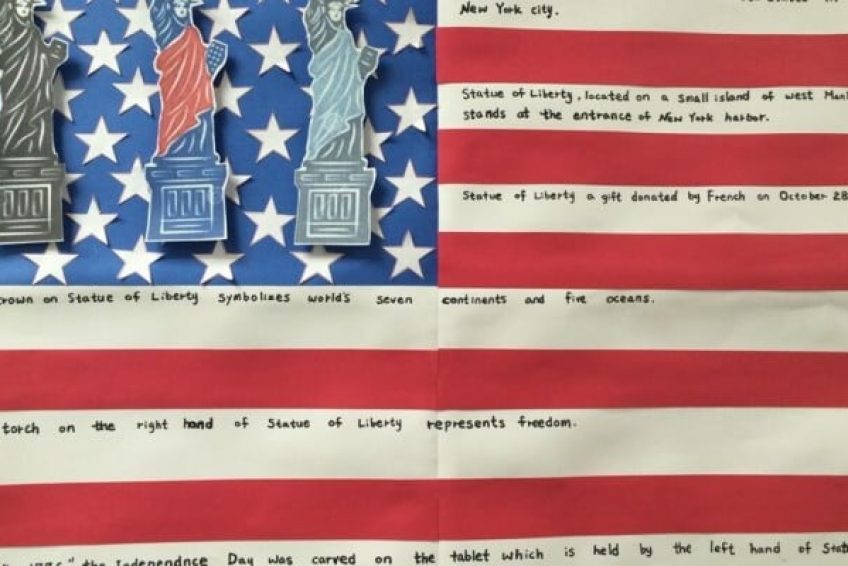 New York city.
Statue of Liberty, located on a small island of west
stands at the entrance of New York harbor.
Statue of Liberty a gift donated by French on October 28
crown on Statue of Liberty symbolizes world's seven continents and five oceans.
torch on the right hand of Statue of Liberty represents freedom.
the Independnce Day was carved on the tablet which is held by the left hand of